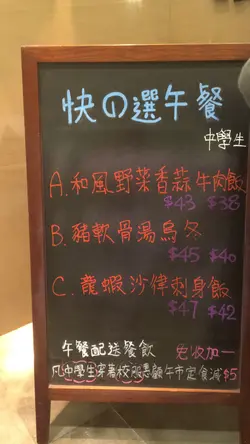 快の選午餐
中學生
A.和風野菜香蒜牛肉飯
$43 $38
B.豬軟骨湯烏冬
$45 $40
C.龍蝦沙律刺身飯
$47 $42
午餐配送餐飲 免收加一
凡中學生穿著校服惠顧午市定食減$5